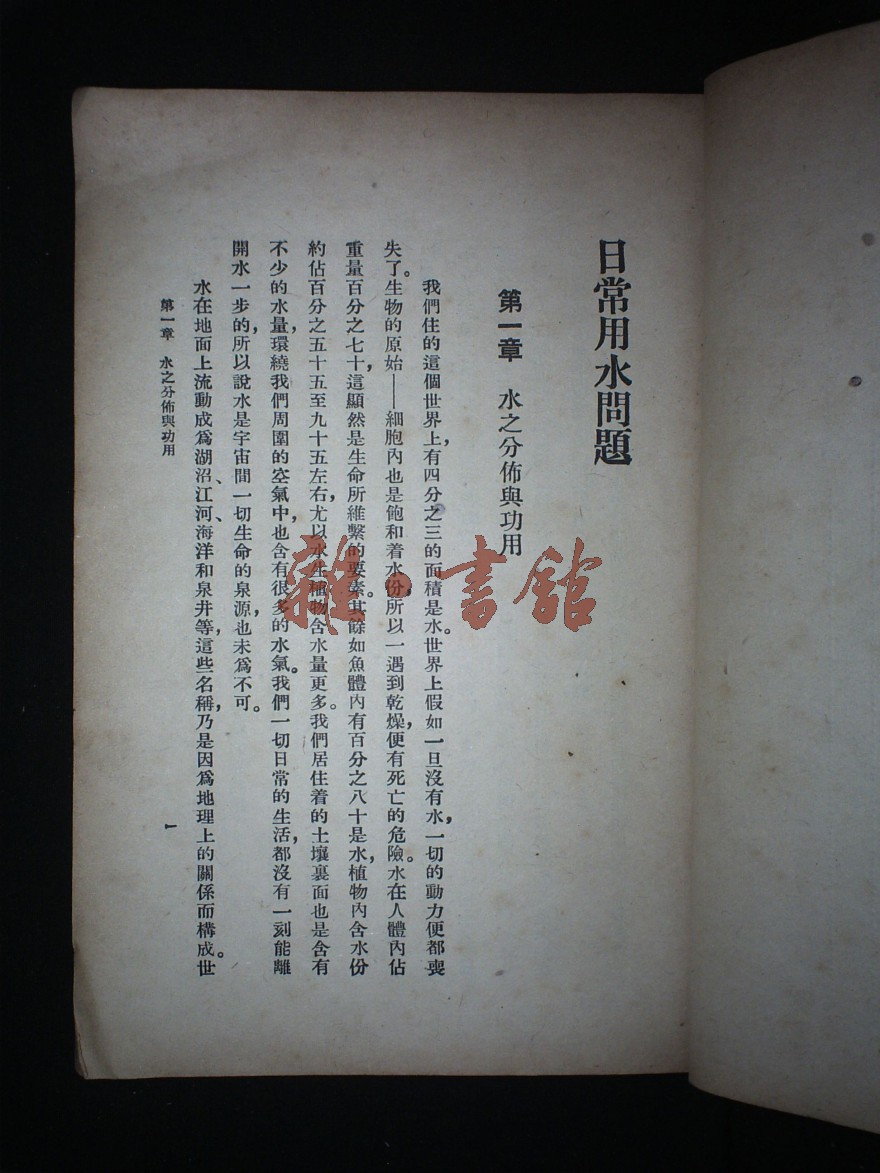 日常用水問題
第一章 水之分佈與功用
我們住的這個世界上，有四分之三的面積是水。世界上假如一旦沒有水，一切的動力便都喪
失了。生物的原始——細胞內也是飽和着水份，所以一遇到乾燥，便有死亡的危險。水在人體內佔
重量百分之七十，這顯然是生命所維繫的要素。其餘如魚體內有百分之八十是水，植物內含水份
約佔百分之五十五至九十五左右，尤以水生植物含水量更多。我們居住着的土壤裏面也是含有
不少的水量，環繞我們周圍的空氣中，也含有很多的水氣。我們一切日常的生活，都沒有一刻能離
開水一步的，所以說水是宇宙間一切生命的泉源，也未爲不可。
水在地面上流動成爲湖沼、江河、海洋和泉井等，這些名稱，乃是因爲地理上的關係而構成。世
第一章 水之分佈與功用
一
雜·書館